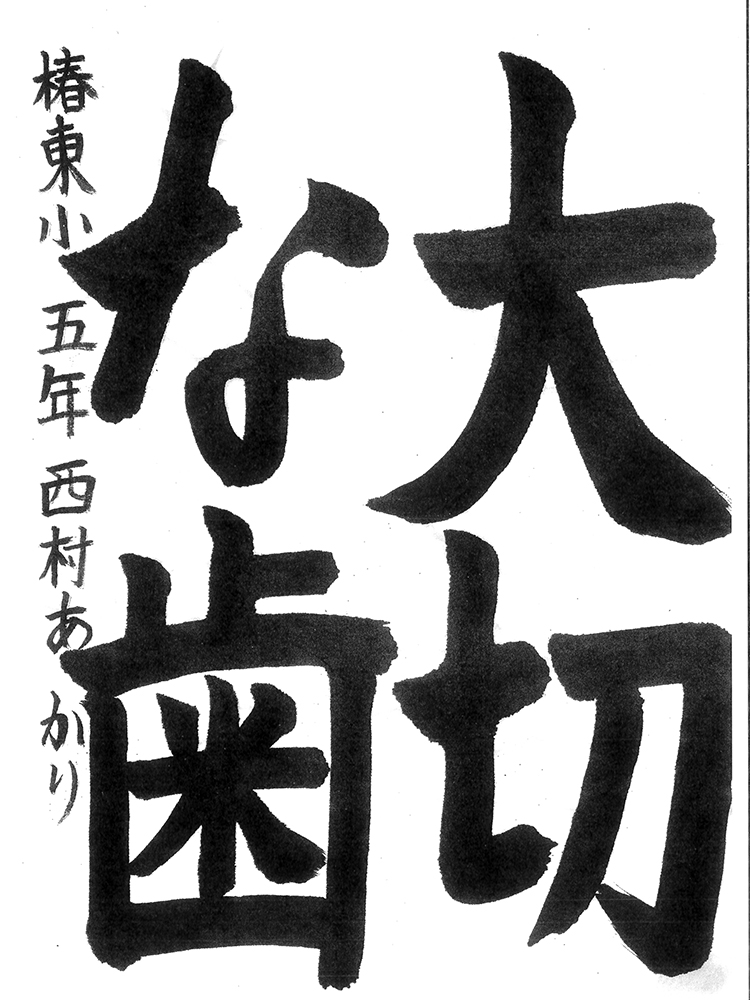 大切
な歯
椿東小 五年 西村あかり